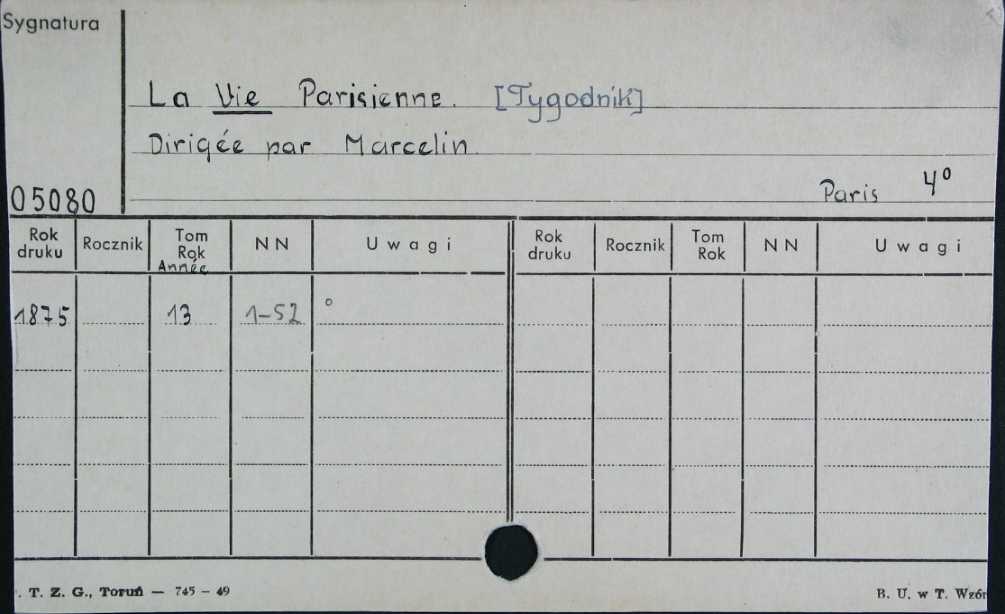 Sygnatura
La Vie Parisienne. [Tygodnik]
Dirigée par Marcelin
05080
Paris 4°
Rok druku Rocznik Tom Rok Année N N Uwagi Rok druku Rocznik Tom Rok N N Uwagi
1875 13 1-52 °
. T. Z. G., Toruń — 745 – 49
B. U. w T. Wzór